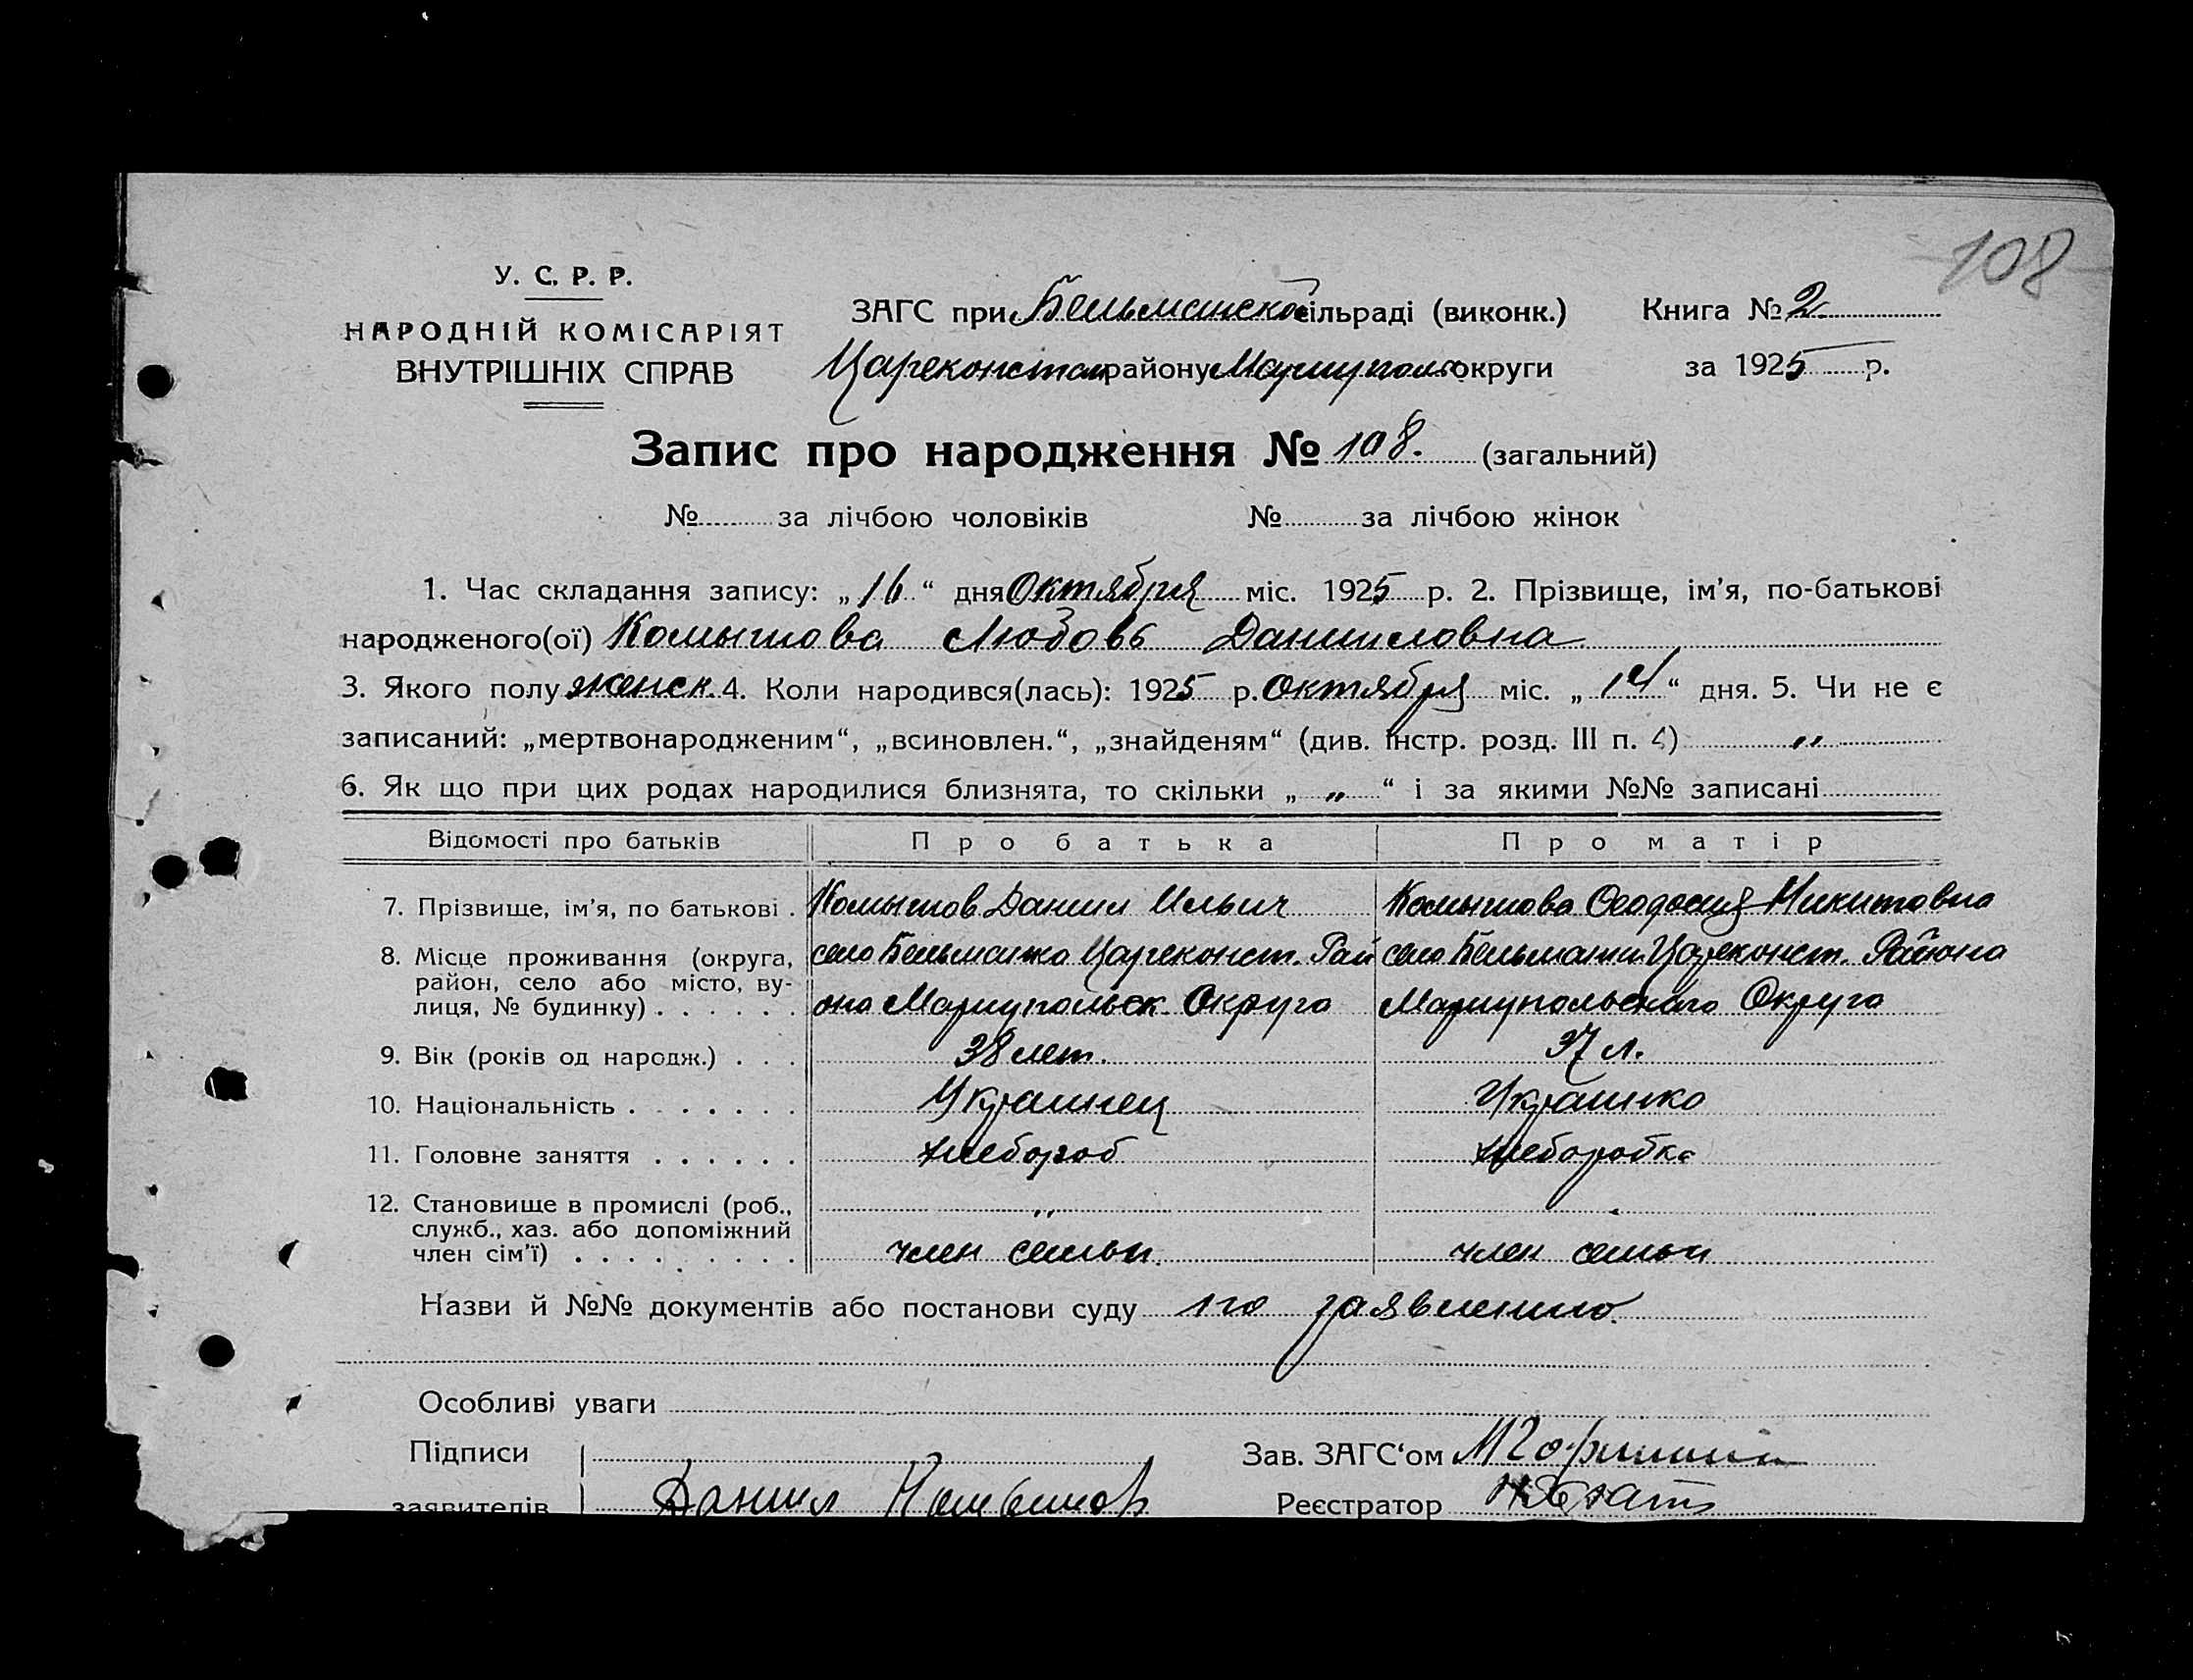 108
У. С. Р. Р.
НАРОДНІЙ КОМІСАРІЯТ
ВНУТРІШНІХ СПРАВ
ЗАГС при Бельманской сільраді (виконк.) Книга № 2
Цареконстан району Мариуполь округи за 1925 р.
Запис про народження № 108. (загальний)
№ за лічбою чоловіків № за лічбою жінок
1. Час складання запису: „16“ дня Октября міс. 1925 р. 2. Прізвище, ім’я, по-батькові
народженого(ої) Комышова Любовь Даниловна
3. Якого полу женск. 4. Коли народився(лась): 1925 р. Октября міс. „14“ дня. 5. Чи не є
записаний: „мертвонародженим“, „всиновлен.“, „знайденям“ (див. Інстр. розд. III п. 4) „
6. Як що при цих родах народилися близнята, то скільки „ „ “ і за якими №№ записані
Відомості про батьків Про батька Про матір
7. Прізвище, ім’я, по батькові . Комышов Данил Ильич Комышова Феодосия Никитовна
8. Місце проживання (округа, село Бельманка Цареконст. Рай село Бельманки Цареконст. Района
район, село або місто, ву-
лиця, № будинку) . . . . . . она Мариупольск. Округа Мариупольского Округа
9. Вік (років од народж.) . . . 38 лет. 37 л.
10. Національність . . . . . . . Украинец Украинка
11. Головне заняття . . . . . . хлебороб хлеборобка
12. Становище в промислі (роб., „
служб., хаз. або допоміжний
член сім’ї) . . . . . . . . . член семьи. член семьи
Назви й №№ документів або постанови суду по заявлению.
Особливі уваги
Підписи Зав. ЗАГС‘ом
заявителів Данил Комышов Реєстратор